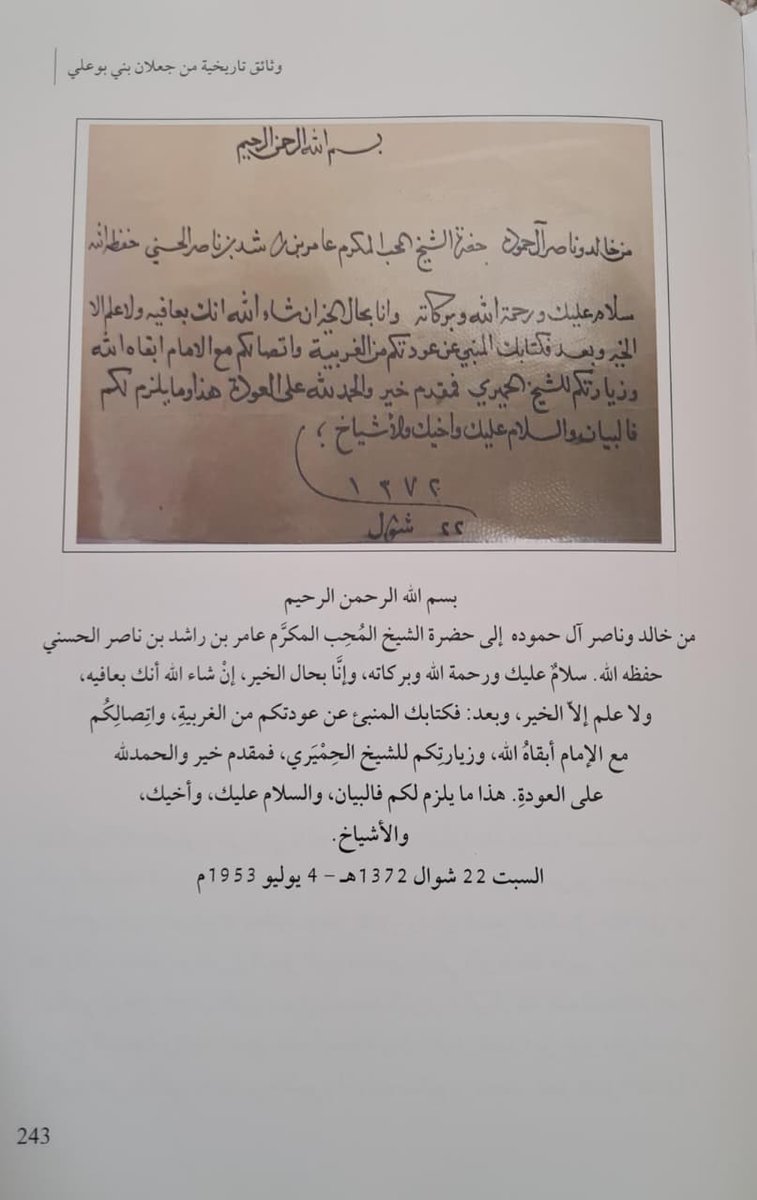 وثائق تاريخية من جعلان بني بوعلي
بسم الله الرحمن الرحيم
من خالد وناصر آل حموده حضرة الشيخ المحب المكرم عامر بن راشد بن ناصر الحسني حفظه الله
سلام عليك ورحمة الله وبركاته وانا بحال الخير ان شاء الله انك بعافيه ولا علم الا
الخير وبعد فكتابك المنبي عن عودتكم من الغربية واتصالكم مع الامام ابقاه الله
وزيارتكم للشيخ الحميري فمقدم خير والحمد لله على العودة هذا وما يلزم لكم
فالبيان والسلام عليك واخيك والأشياخ ؛
١٣٧٢
٢٢ شوال
بسم الله الرحمن الرحيم
من خالد وناصر آل حموده إلى حضرة الشيخ المُحِب المكرَّم عامر بن راشد بن ناصر الحسني
حفظه الله. سلامٌ عليك ورحمة الله وبركاته، وإنَّا بحال الخير، إنْ شاء الله أنك بعافيه،
ولا علم إلاّ الخير، وبعد: فكتابك المنبئ عن عودتكم من الغربيةِ، واتِصالِكُم
مع الإمام أبقاهُ الله، وزيارتِكم للشيخ الحِمْيَري، فمقدم خير والحمدلله
على العودةِ. هذا ما يلزم لكم فالبيان، والسلام عليك، وأخيك،
والأشياخ.
السبت 22 شوال 1372هـ – 4 يوليو 1953م
243